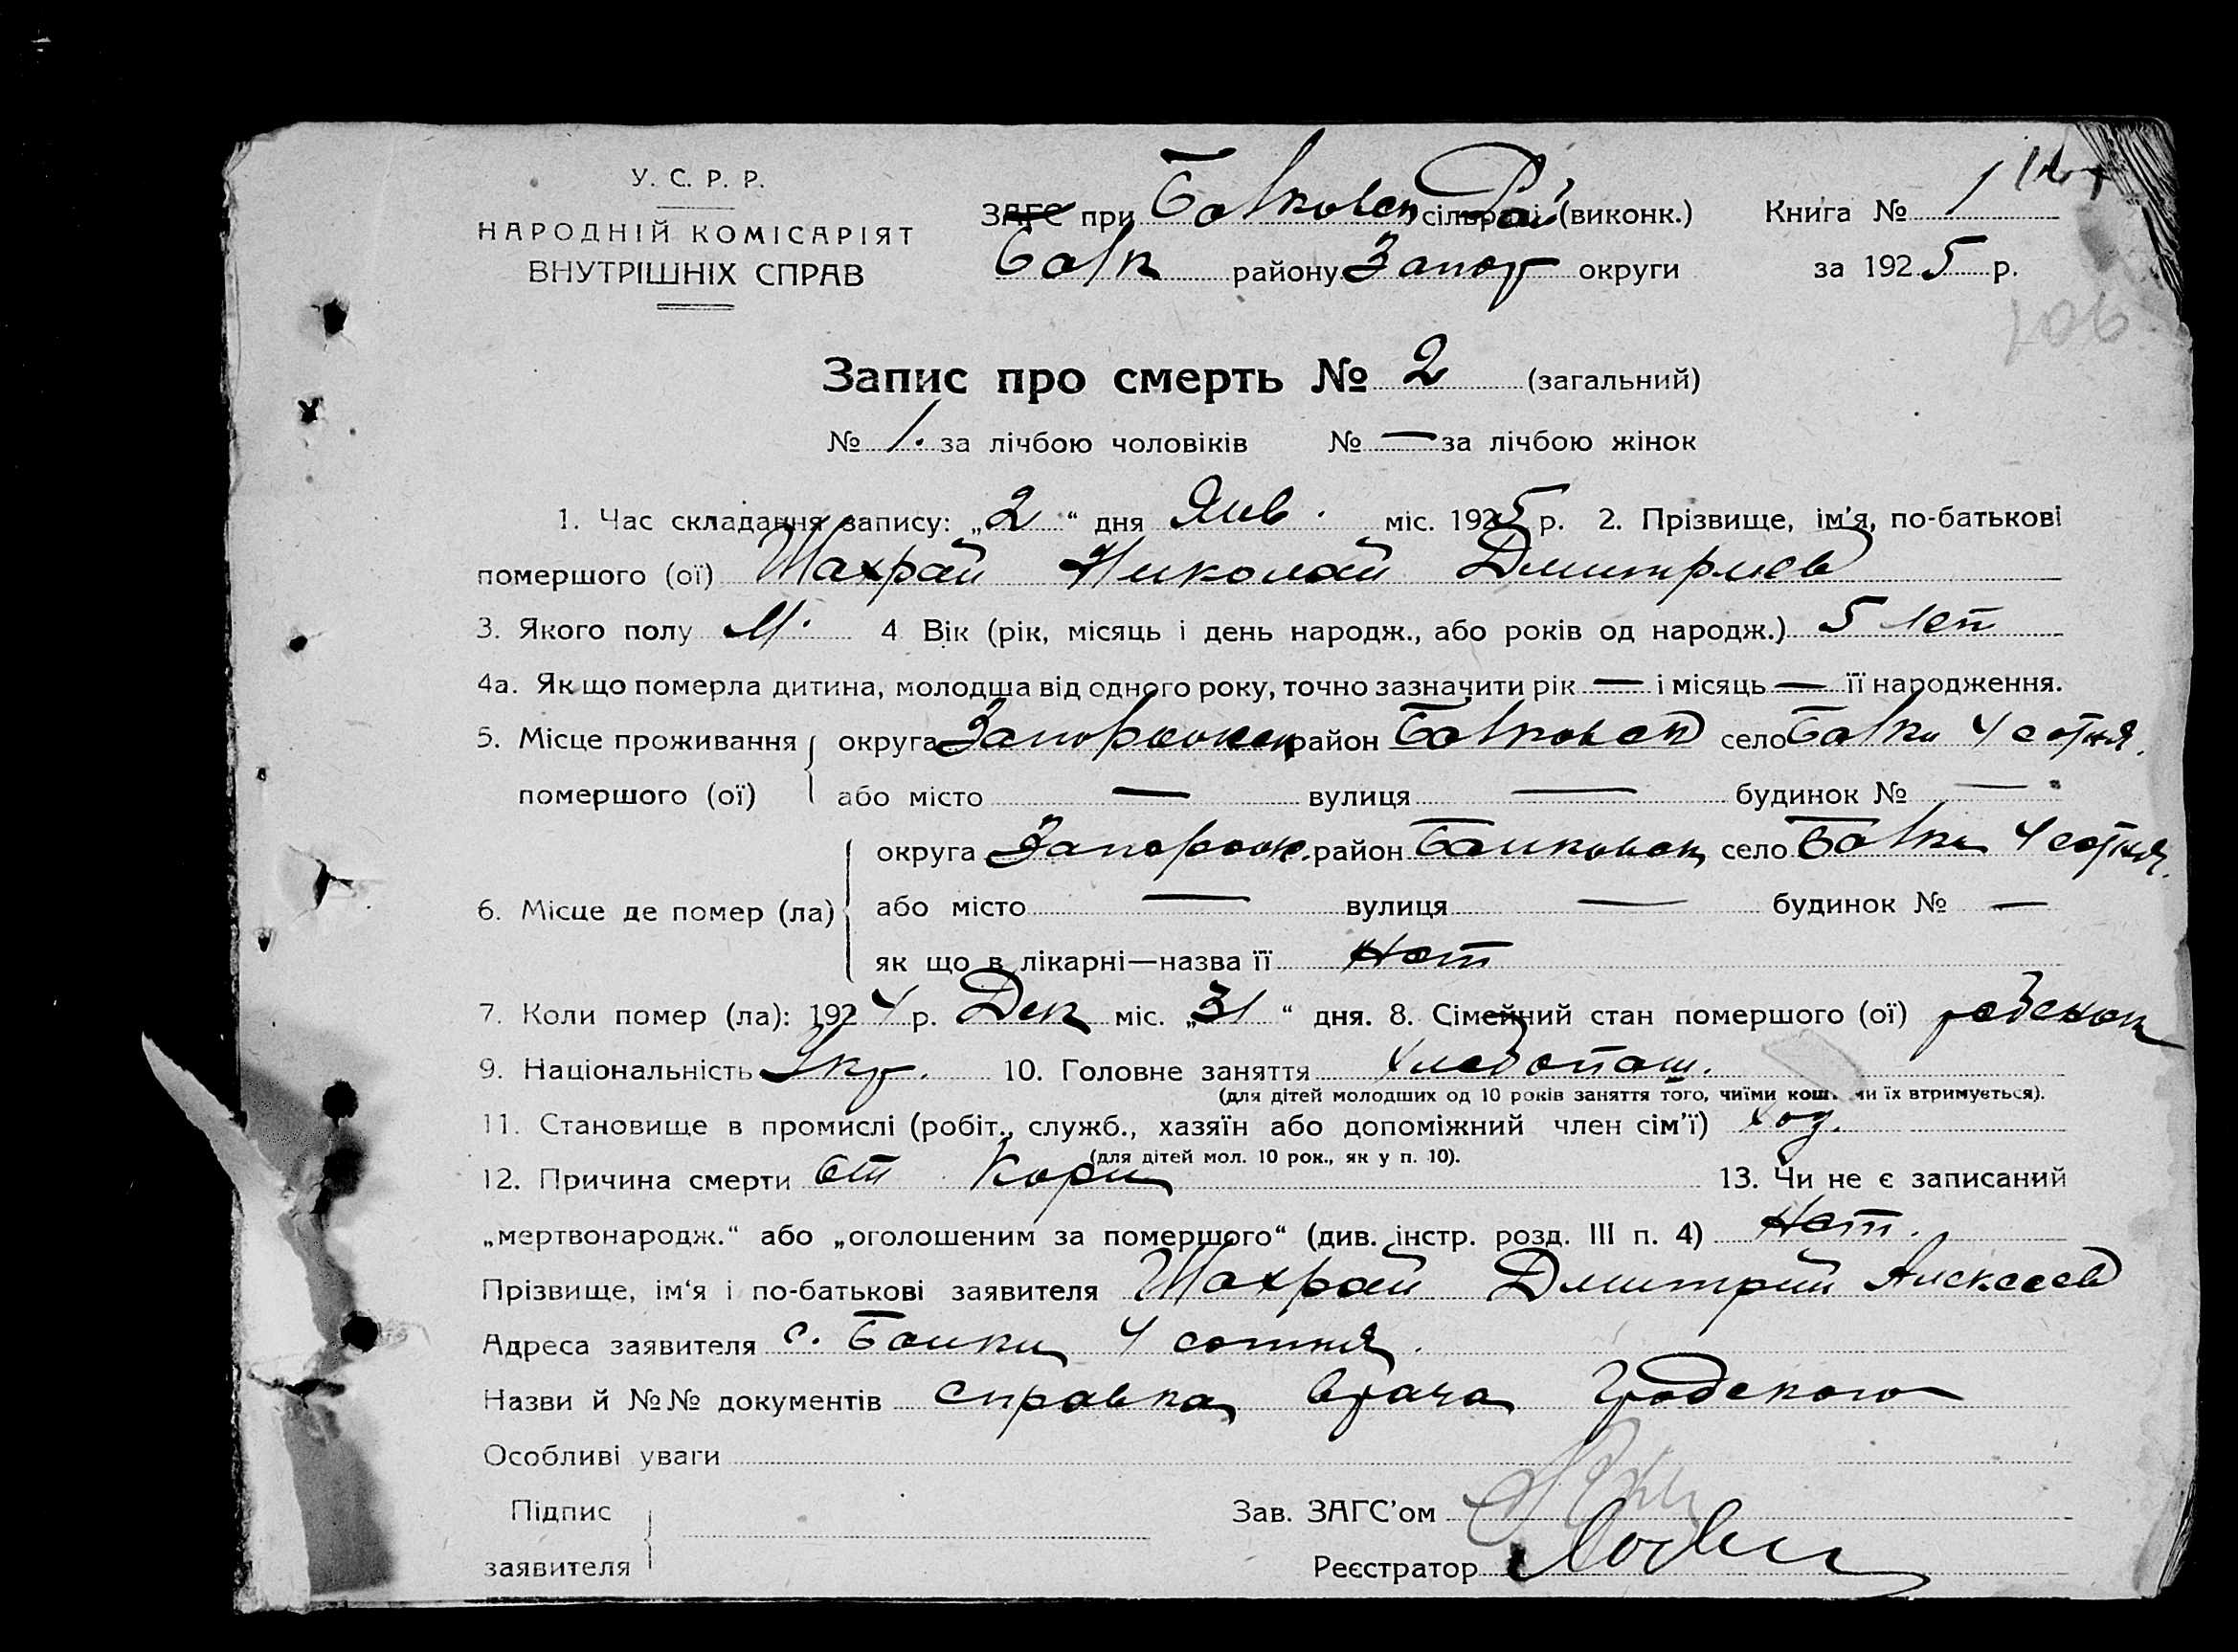 У. С. Р. Р.
НАРОДНІЙ КОМІСАРІЯТ
ВНУТРІШНІХ СПРАВ
ЗАГС при Балковск сільраді (виконк.)
Балк району Запор округи
Книга № 1
за 1925 р.
106
Запис про смерть № 2 (загальний)
№ 1. за лічбою чоловіків № — за лічбою жінок
1. Час складання запису: „2“ дня Янв. міс. 1925 р. 2. Прізвище, ім'я, по-батькові
помершого (ої) Шахрай Николай Дмитриев
3. Якого полу М. 4 Вік (рік, місяць і день народж., або років од народж.) 5 лет
4а. Як що померла дитина, молодша від одного року, точно зазначити рік — і місяць — її народження.
5. Місце проживання округа Запорожск район Балковск село Балки 4 сотня.
помершого (ої) або місто — вулиця — будинок № —
округа Запорож. район Балковск село Балки 4 сотня.
6. Місце де помер (ла) або місто — вулиця — будинок № —
як що в лікарні—назва її Нет
7. Коли помер (ла): 1924 р. Дек міс. „31“ дня. 8. Сімейний стан помершого (ої) ребенок
9. Національність Укр. 10. Головне заняття хлебопаш.
(для дітей молодших од 10 років заняття того, чиїми кош ми їх втримується).
11. Становище в промислі (робіт., служб., хазяїн або допоміжний член сім'ї) хоз.
(для дітей мол. 10 рок., як у п. 10).
12. Причина смерти От Кори 13. Чи не є записаний
„мертвонародж.“ або „оголошеним за помершого“ (див. інстр. розд. III п. 4) Нет.
Прізвище, ім'я і по-батькові заявителя Шахрай Дмитрий Алексеев
Адреса заявителя с. Балки 4 сотня.
Назви й №№ документів справка врача Гродского
Особливі уваги
Підпис
заявителя
Зав. ЗАГС'ом
Реєстратор